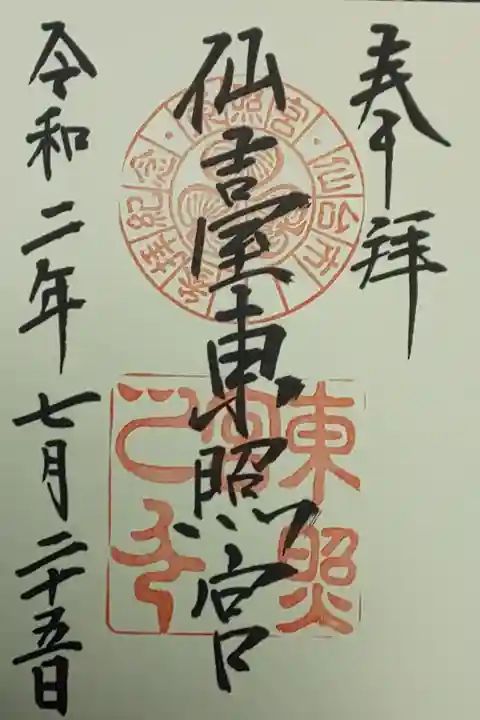 奉拝
仙臺東照宮
令和二年七月二十五日
東照宮・仙台市・参拝紀念・
東照宮